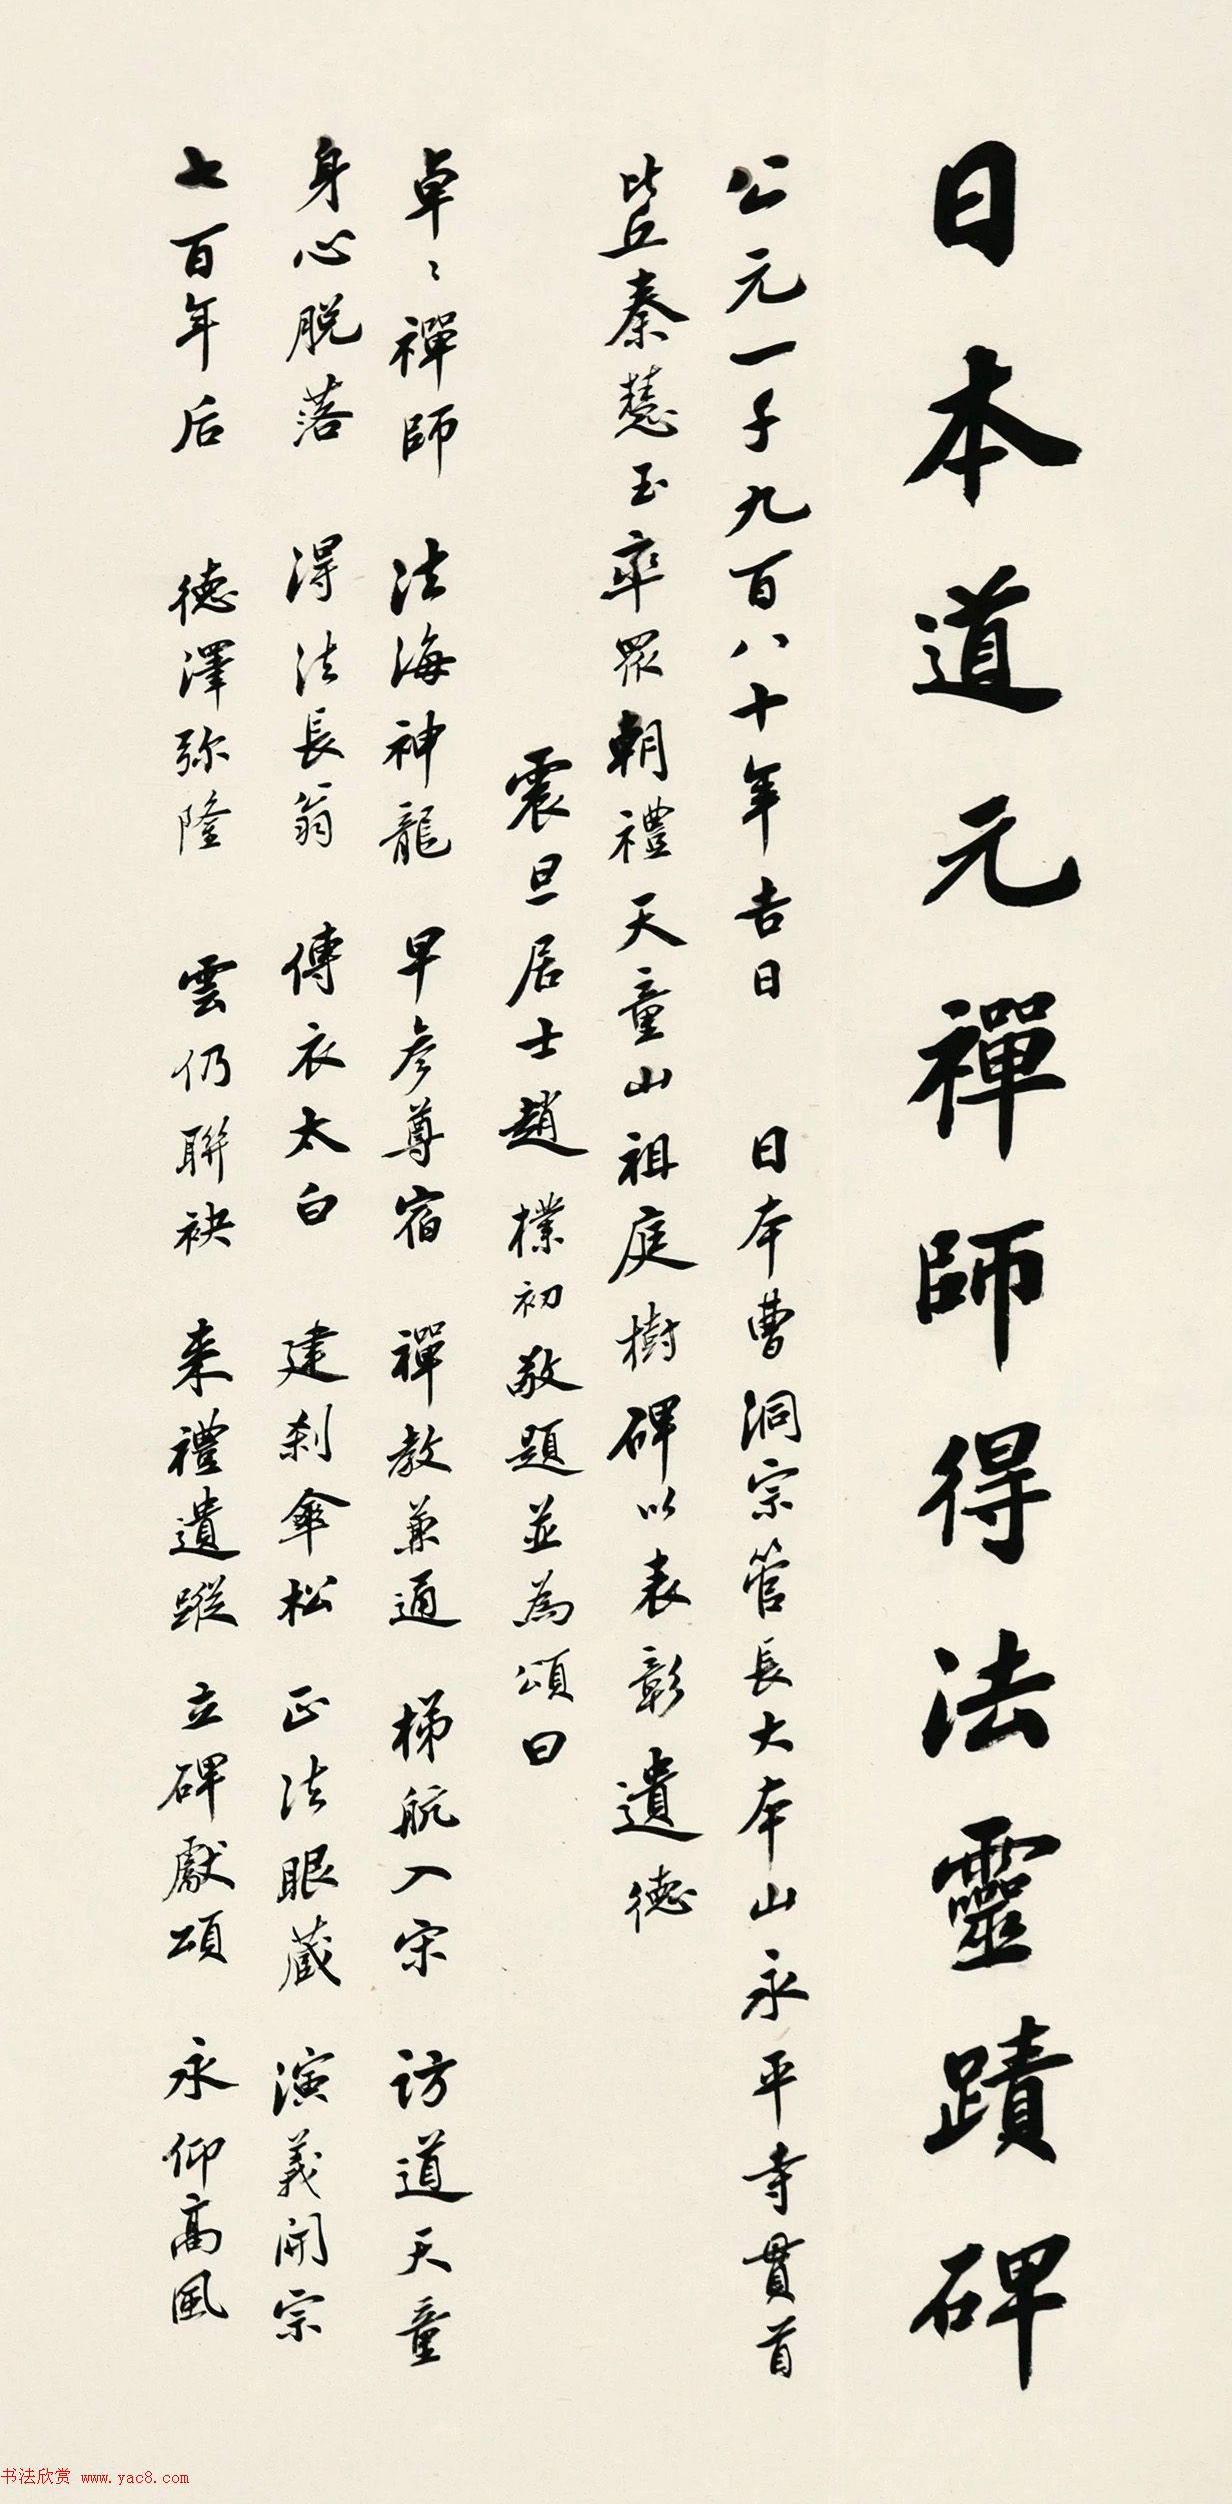 日本道元禪師得法靈蹟碑
公元一千九百八十年吉日 日本曹洞宗管長大本山永平寺貫首
比丘秦慧玉率眾朝禮天童山祖庭樹碑以表彰遺德
震旦居士趙樸初敬題並為頌曰
卓〻禪師 法海神龍 早參尊宿 禪教兼通 梯航入宋 訪道天童
身心脫落 得法長翁 傳衣太白 建刹傘松 正法眼藏 演義開宗
七百年后 德澤弥隆 雲仍聯袂 来禮遺蹤 立碑獻頌 永仰高風
书法欣赏 www.yac8.com